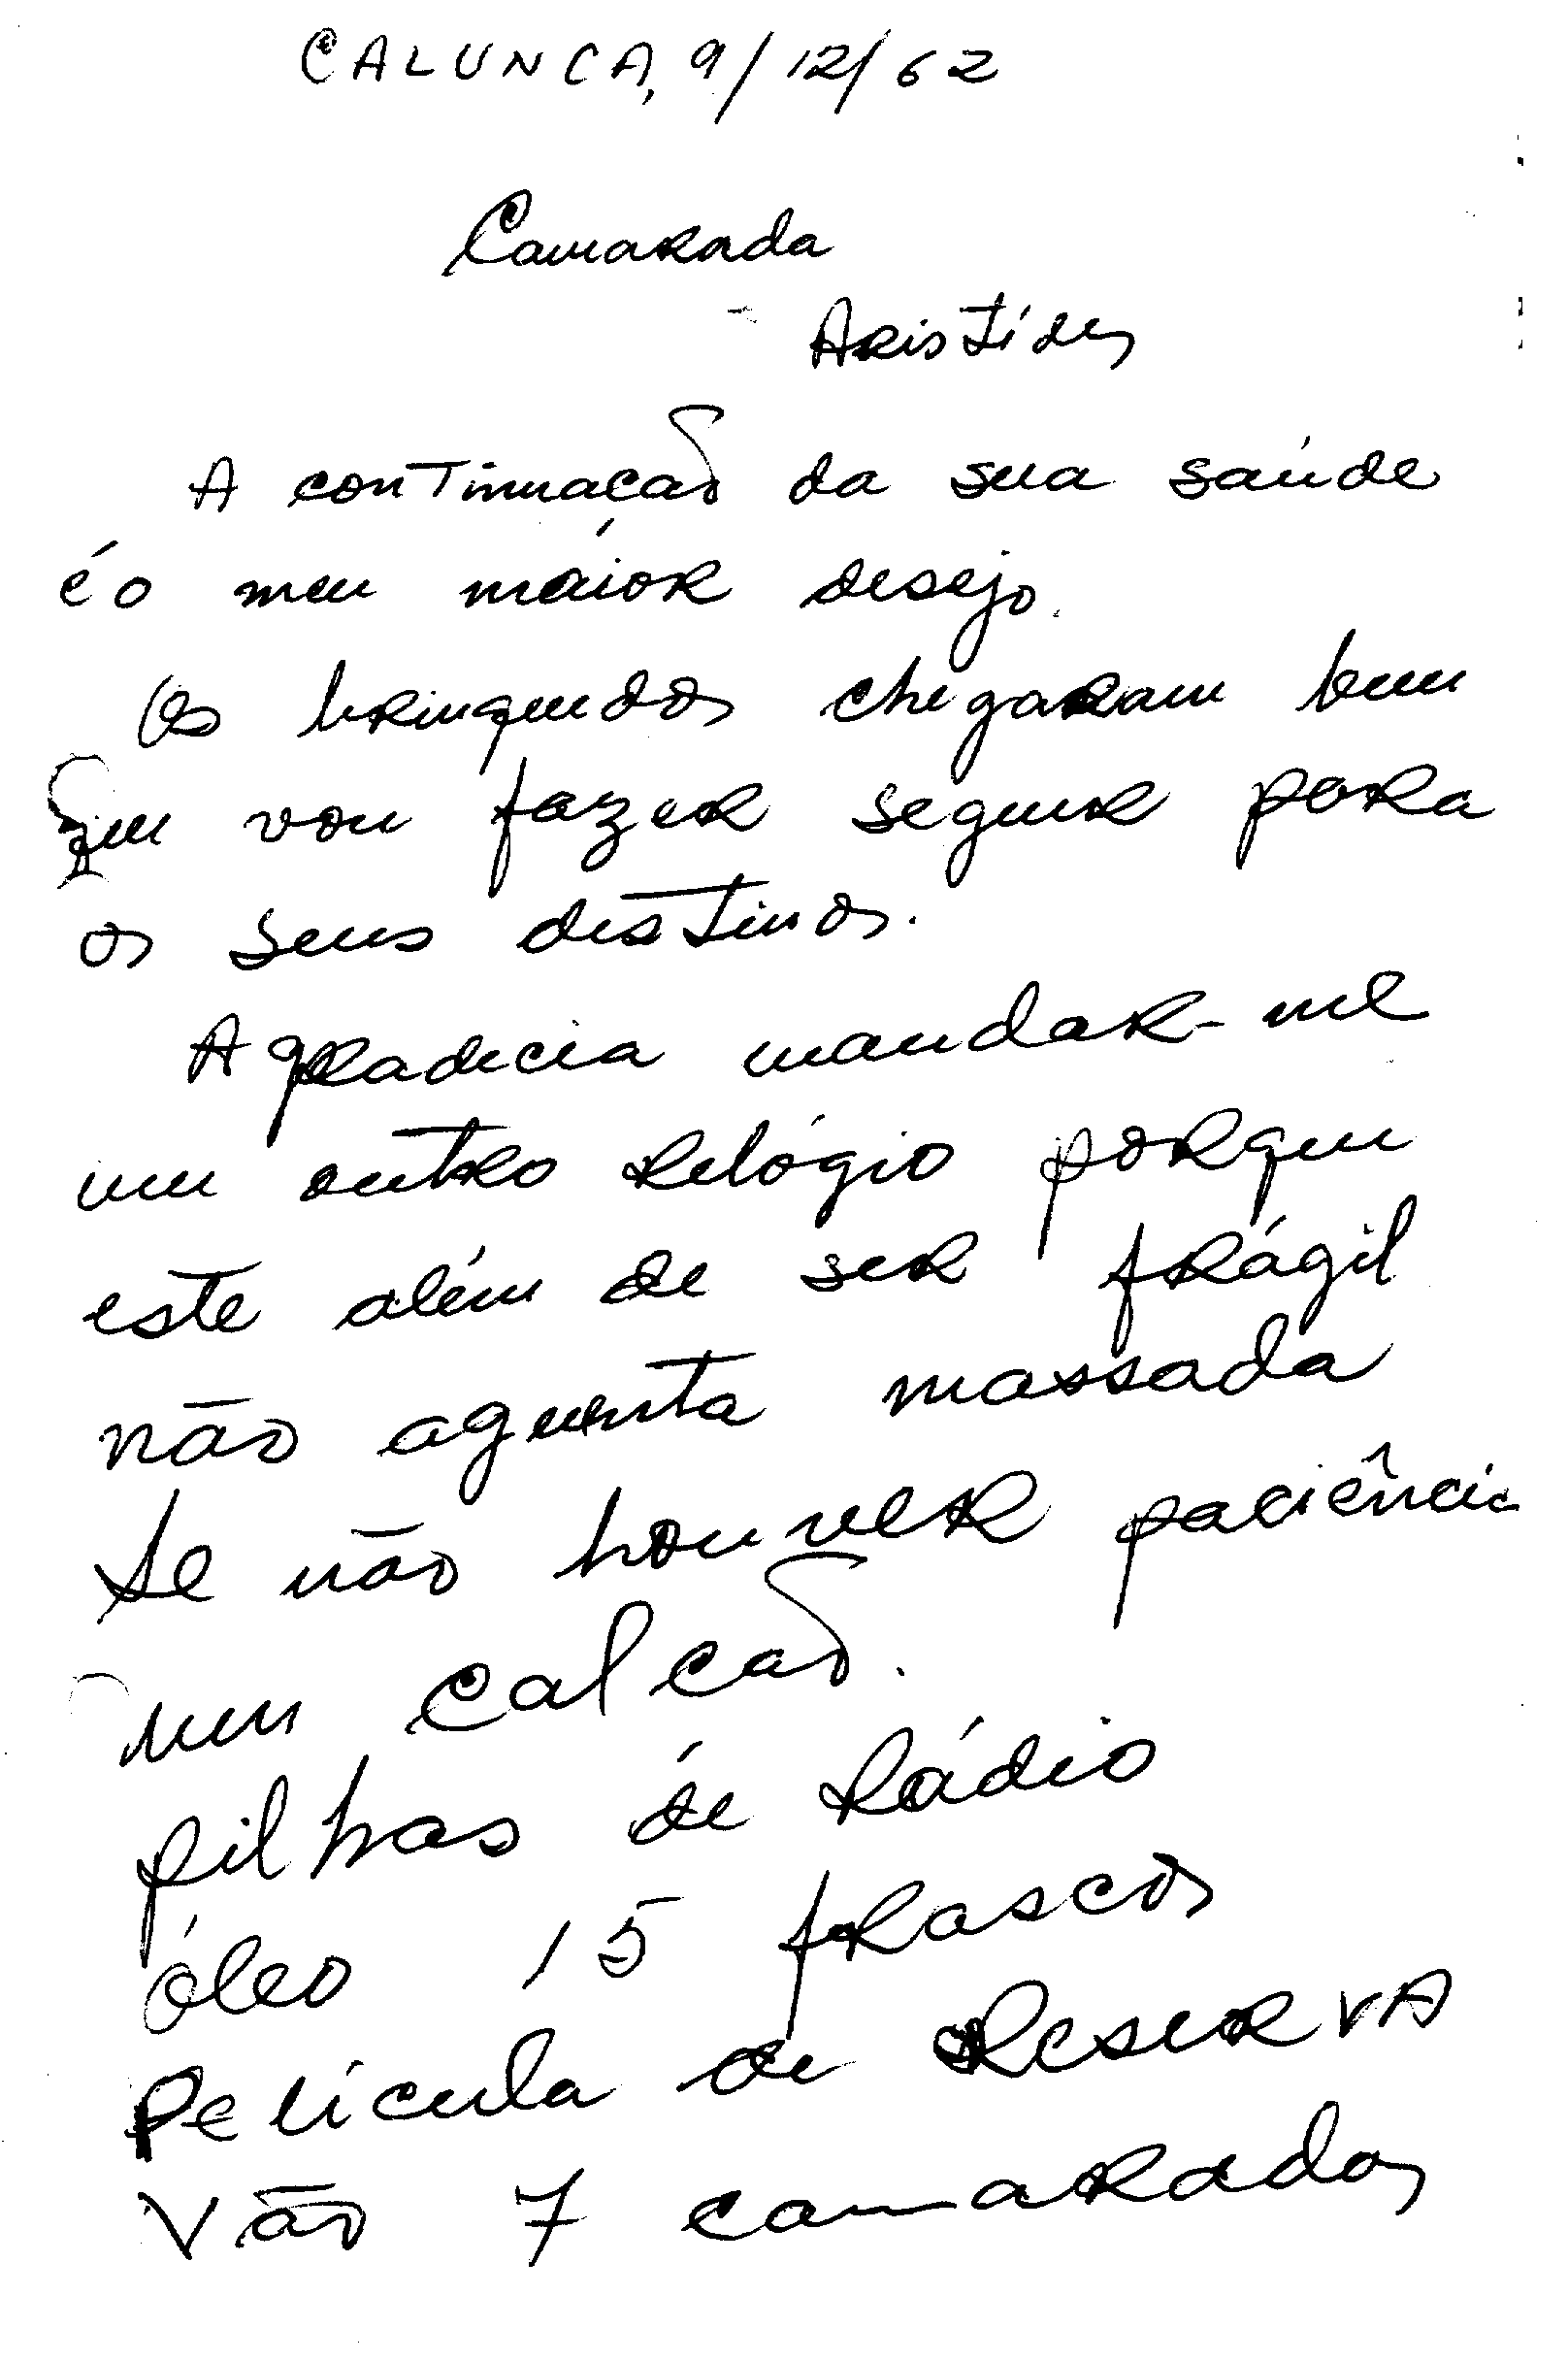 CALUNCA, 9/12/62
Camarada
Aristídes
A continuação da sua saúde
é o meu máior desejo.
Os brinquedos chegaram bem
que vou fazer seguir para
os seus destinos.
Agradecia mandar-me
um outro relógio porque
este além de ser frágil
não aguenta massada
Se não houver paciência
um calcão.
pilhas de Rádio
óleo 15 frascos
Pelicula de Reserva
Vão 7 camaradas